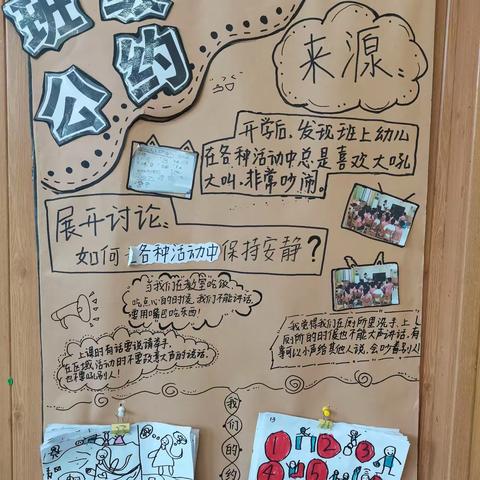 班级
公约
来源
开学后,发现班上幼儿
在各种活动中总是喜欢大吼
大叫,非常吵闹。
展开讨论:
如何在各种活动中保持安静?
当我们在教室吃饭
吃点心的时候,我们不能讲话,
要用嘴巴吃东西!
我觉得我们在厕所里洗手、上
厕所的时候也不能大声讲话,有
事可以小声给其他人说,会吵着别人!
上课的有话要说请举手,
在区域活动的不要大声的说话,
也不要吼别人!
我们的约
1
2
3
4
5